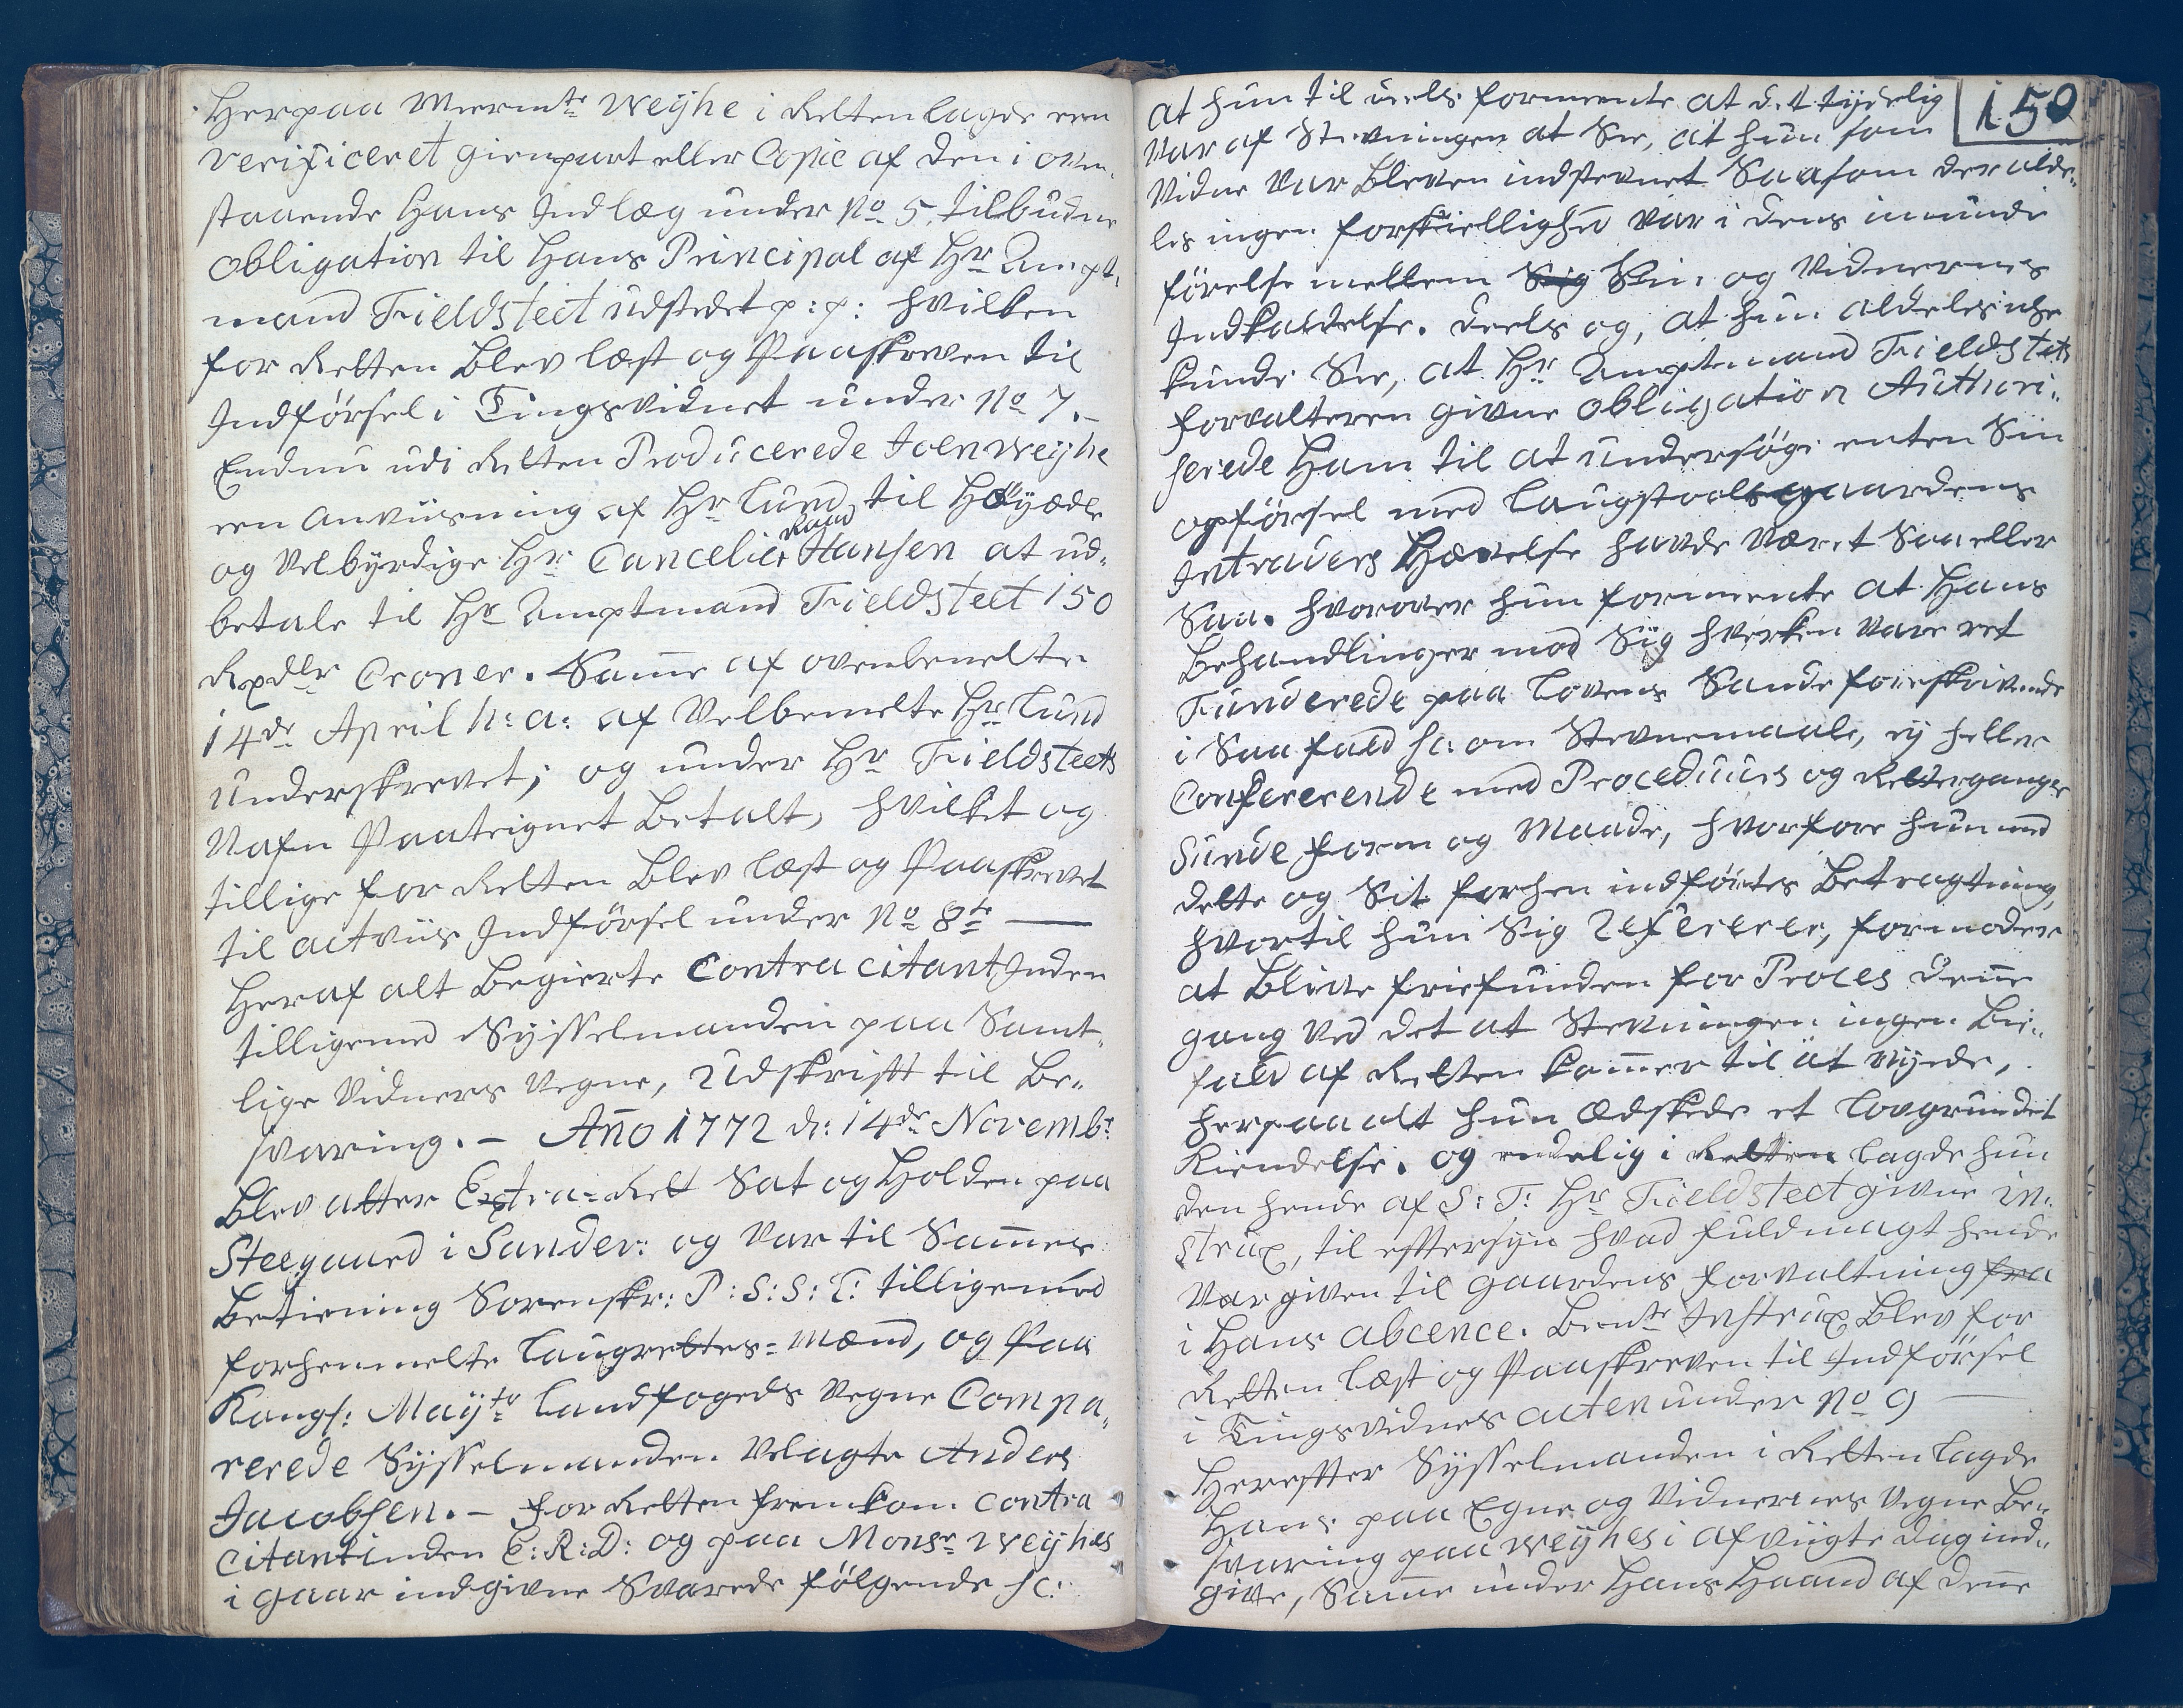 Herpaa Meermte Weyhe i Retten lagde een
verificeret gienpart eller Copie af den i oven„
staaende hans Indlæg under No 5. tilbudne
obligation til hans Principal af Hr Ampt„
mand Fieldsteet udstedet p: p: hvilken
for Retten blev læst og Paaskreven til
Indförsel i Tingsvidnet under No 7.–
Endnu udi Retten Producerede Joen Weyhe
een anviisning af Hr Lund til Höyædle
og Velbyrdige Hr Cancelie Raad Hansen at ud„
betale til Hr Amptmand Fieldsteet 150
Rxdlr Croner. Samme af ovenbemelte
14de April h: a: af Velbemelte Hr Lund
underskrevet; og under Hr Fieldsteets
Nafn Paateignet Betalt, hvilket og
tillige for Retten blev læst og Paaskrevet
til actviis Indförsel under No 8te —
Heraf alt begierte Contra citantInden
tilligemed Sysselmanden paa Samt„
lige Vidners Vegne, Udskrift til Be„
svaring. – Año 1772 d: 14de Novembr
blev atter Extra=Rett Sat og Holden paa
Steegaard i Sander: og var til Sammes
betiening Sorenskr: P: S: S: T: tilligemed
forhenmelte Laugrettes=Mænd, og Paa
Kongl: Mayts Landfogeds Vegne Compa„
rerede Sysselmanden Velagte Anders
Jacobsen. – for Retten fremkom Contra
Citantinden E: R: D: og paa Monsr Weyhes
i gaar indgivne Svarede fölgende sc:
150
at hun til deels formeente at det tydelig
var af Stevningen at See, at hun som
Vidne var bleven indstevnet Saasom der alde„
les ingen forskiellighed var i dens inmunde
förelse mellem Sig Sin og Vidnernes
Indkaldelse. deels og, at hun aldeles icke
kunde See, at Hr Amptmand Fieldsteets
forvalteren givne obligation Authori„
serede ham til at undersöge enten Sin
opförsel med Laugstoelsgaardens
Intraders Hævelse havde været Saa eller
Saa. hvorover hun formeente at hans
behandlinger mod Sig hverken vare ret
Funderede paa Lovens Sande foreskrivende
i Saa fald sc: om Stevnemaale, ey heller
Confererende med Proceduurs og Rettergangs
Sunde form og Maade, hvorfore hun med
dette og Sit forhen indförtes Betragtning,
hvortil hun Sig refererer, formoder
at blive friefunden for Proces denne
gang ved det at Stevningen ingen bie„
fald af Retten kommer til at nyde,
herpaa alt hun Ædskede et Lovgrundet
Kiendelse. og endelig i Retten lagde hun
den hende af S: T: Hr Fieldsteet givne in„
strux, til eftersyn hvad fuldmagt hende
var given til gaardens forvaltning fra
i Hans abcence. bemte Instrux blev for
Retten læst og Paaskreven til Indförsel
i Tingsvidnes acten under No 9 —
Herefter Sysselmanden i Retten lagde
hans paa Egne og Vidnernes Vegne be„
svaring paa Weyhes i afvigte dag ind„
give, Samme under hans Haand af denne